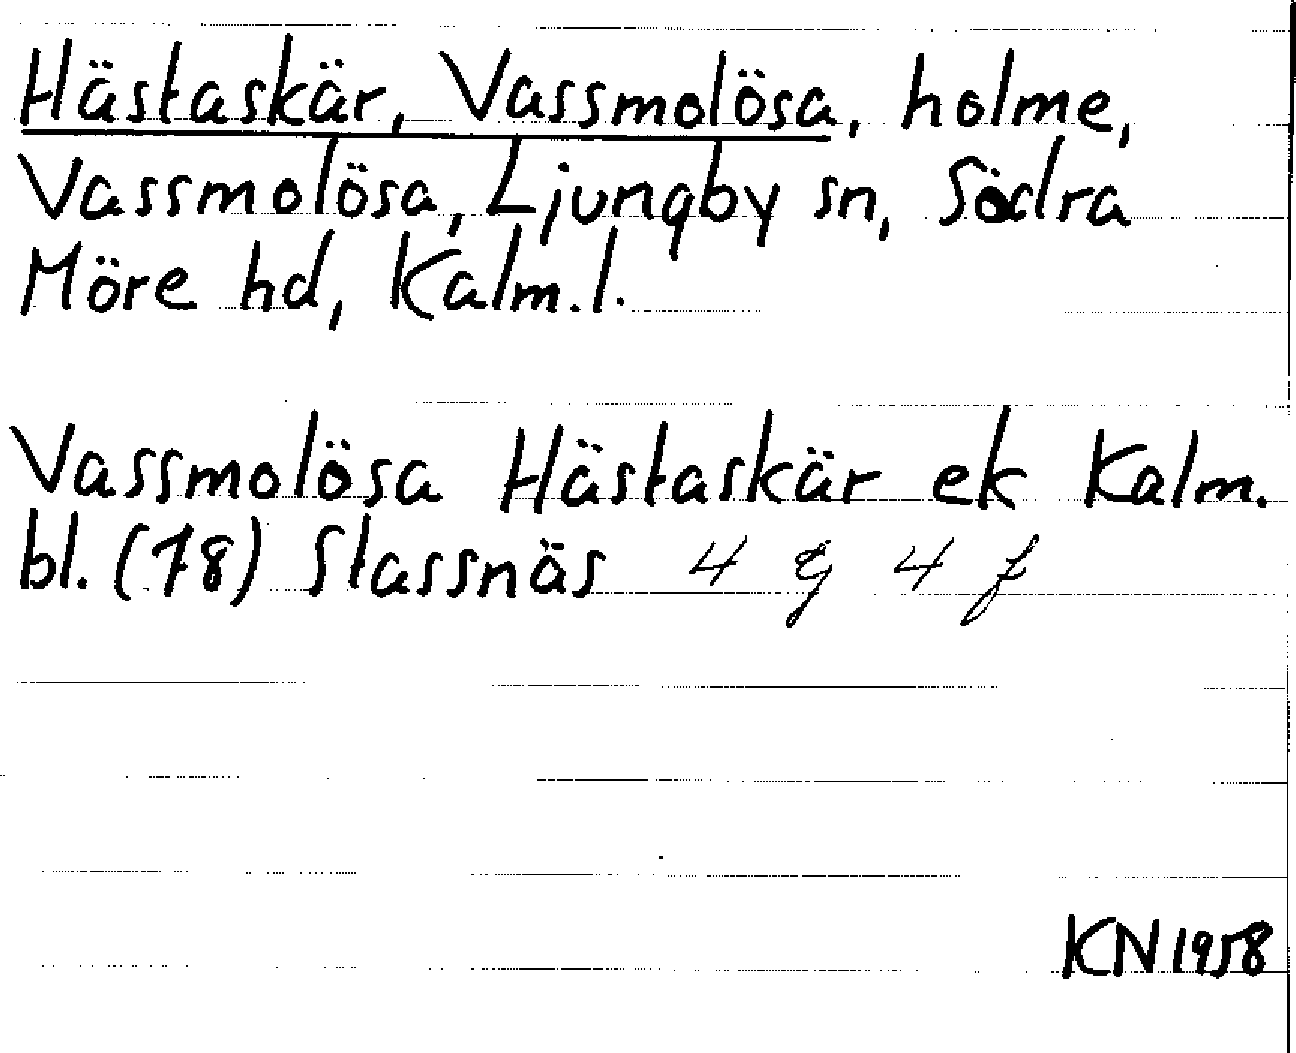 Hästaskär, Vassmolösa, holme,
Vassmolösa, Ljungby sn, Södra
Möre hd, Kalm. l.
Vassmolösa Hästaskär ek Kalm.
bl. (78) Stassnäs 4 g 4 f
KN 1958